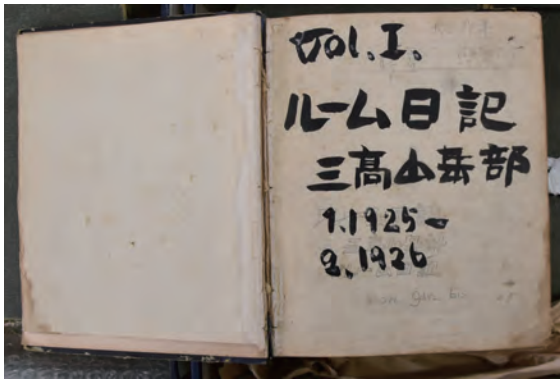 Vol.I.
ルーム日記
三高山岳部
1.1925~
9.1926